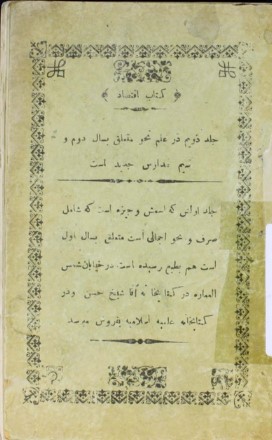 کتاب اقتصاد
جلد دویم در علم نحو متعلق بسال دوم و
سیم مدارس جدید است
جلد اولش که اسمش وجیزه است که شامل
صرف و نحو اجمالی است متعلق بسال اول
است هم بطبع رسیده است در خیابان شمس
العماره در کتابخانه آقا شیخ حسن ودر
کتابخانه علمیه اسلامیه بفروش میرسد